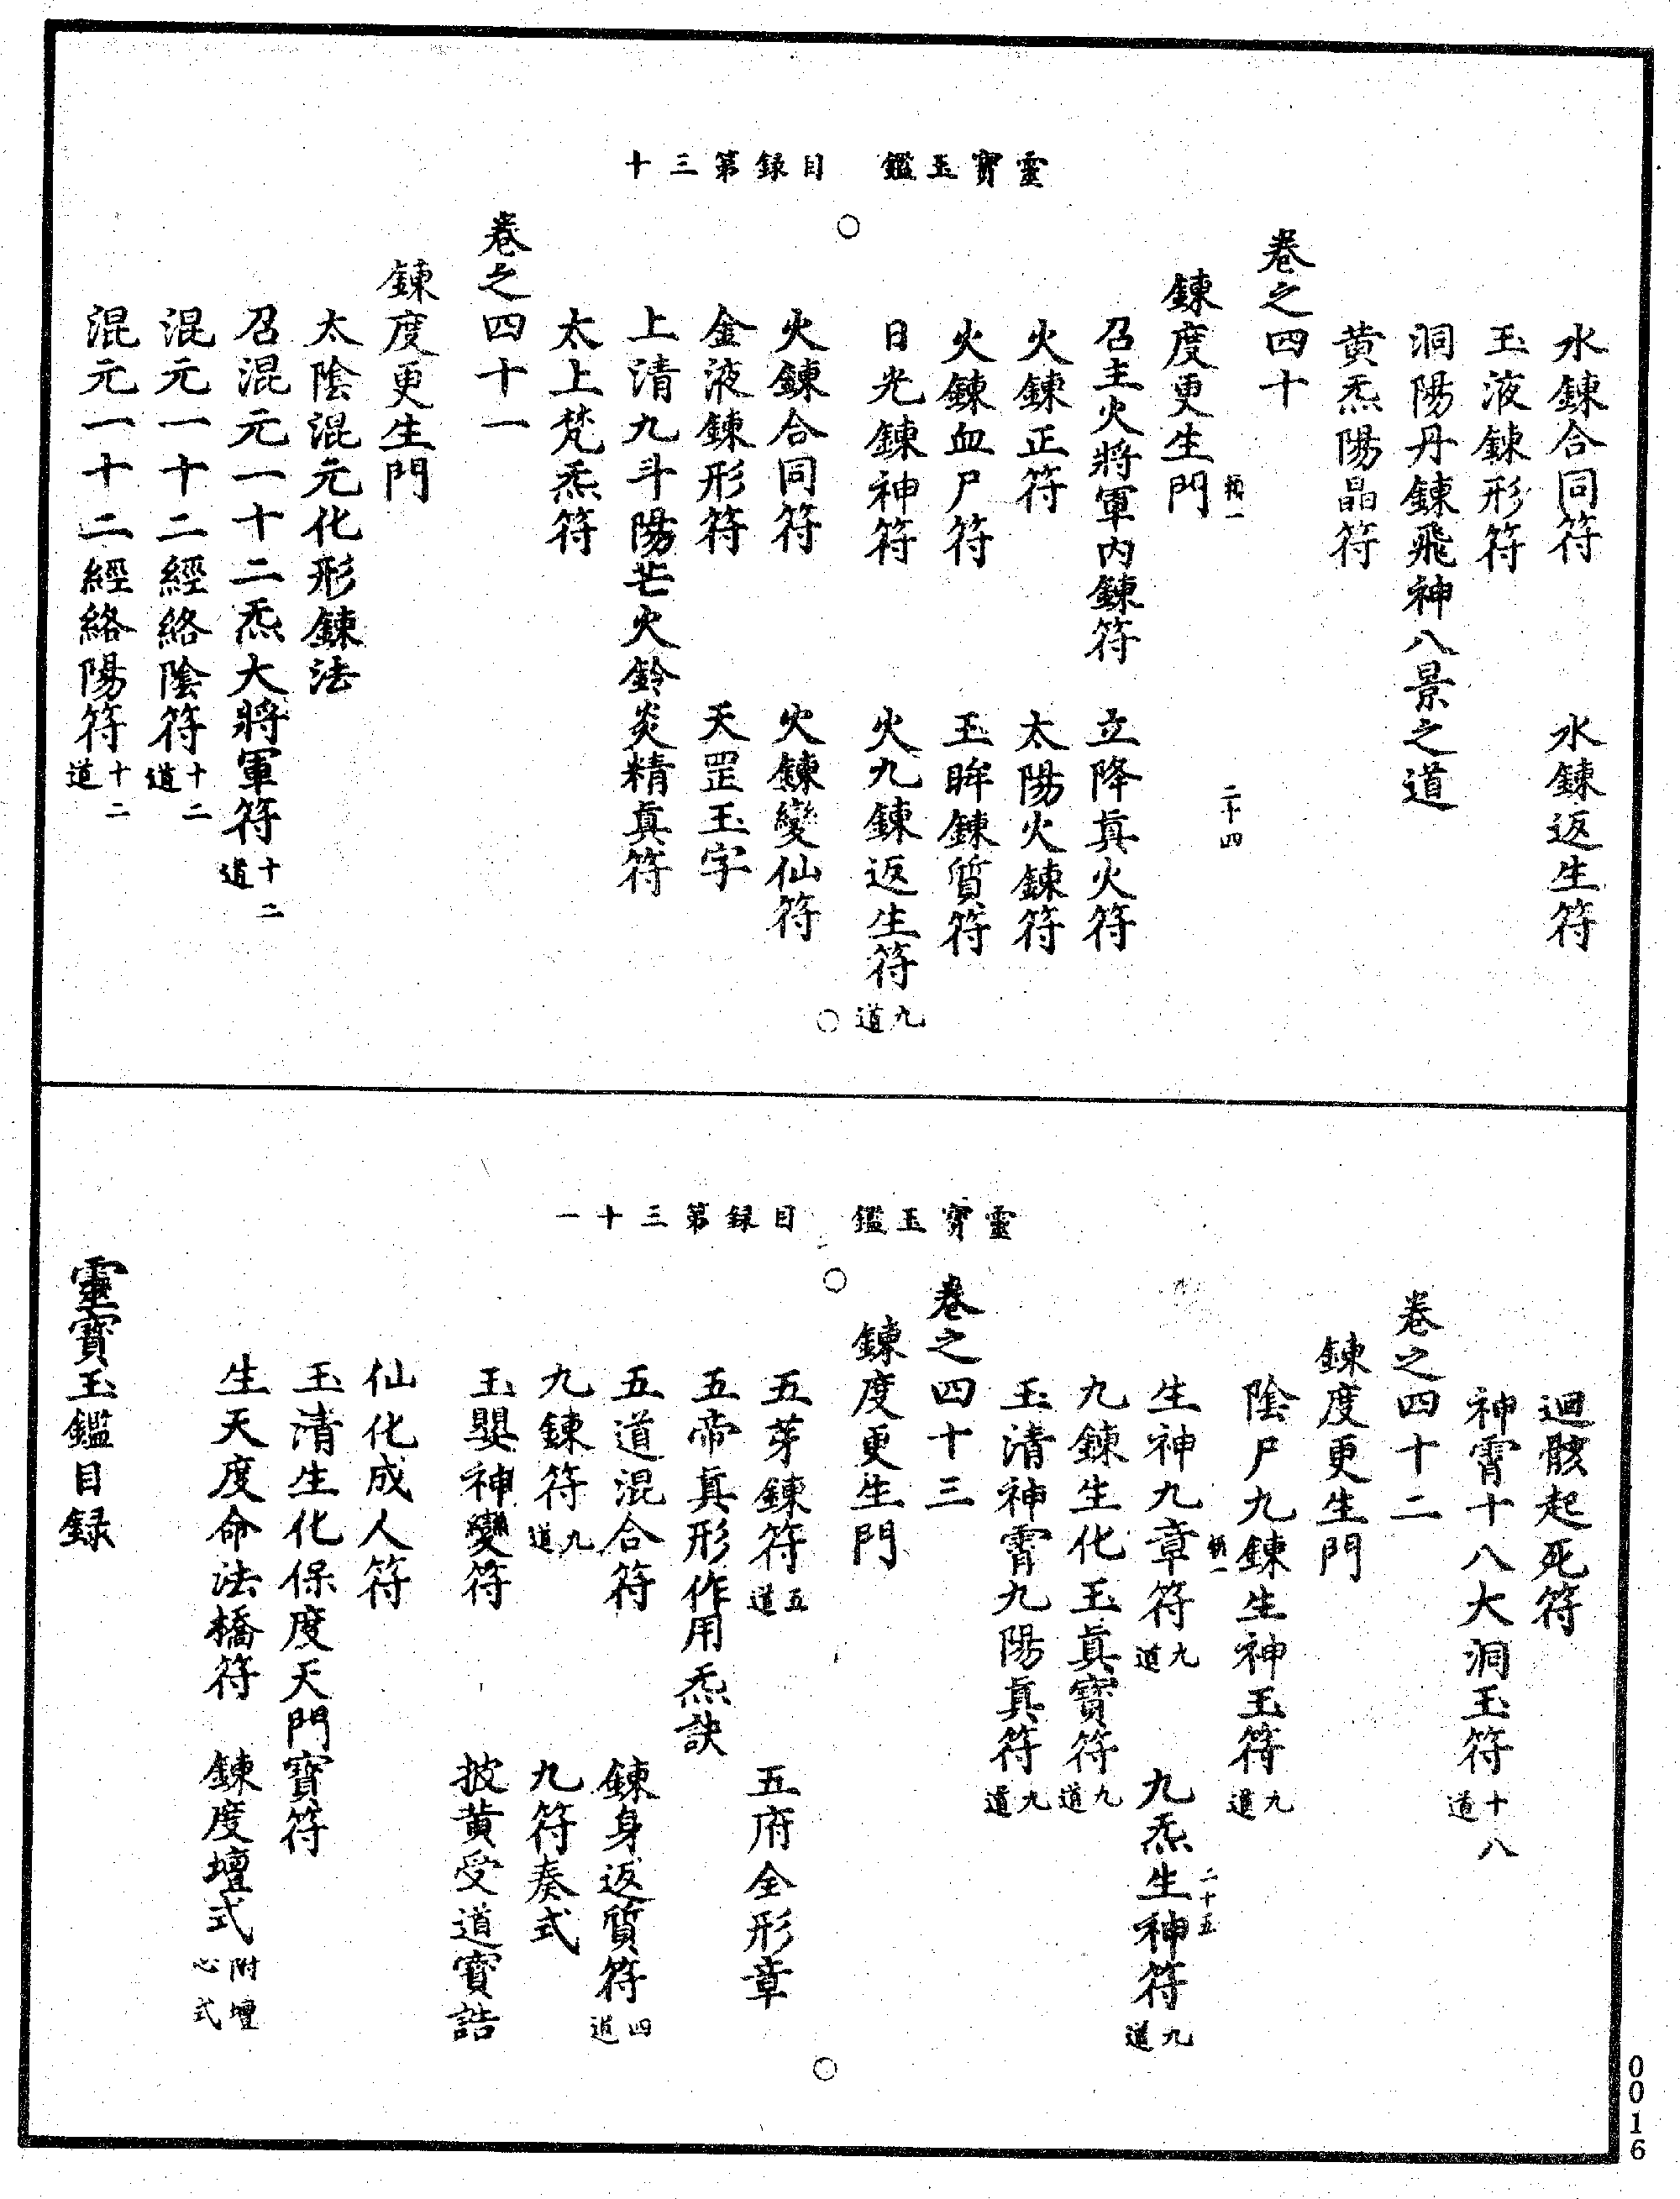 靈寶玉鑑　目録第三十
水鍊合同符　水鍊返生符
玉液鍊形符
洞陽丹鍊飛神八景之道
黄炁陽晶符
卷之四十
二十四
鍊度更生門
召主火將軍内鍊符　立降真火符
火鍊正符　太陽火鍊符
火鍊血尸符　玉眸鍊質符
日光鍊神符　火九鍊返生符九道
火鍊合同符　火鍊變仙符
金液鍊形符　天罡玉字
上清九斗陽芒火鈴炎精真符
太上梵炁符
卷之四十一
鍊度更生門
太陰混元化形鍊法
召混元一十二炁大將軍符十二道
混元一十二經絡陰符十二道
混元一十二經絡陽符十二道
靈寶玉鑑　目録第三十一
迴骸起死符
神霄十八大洞玉符十八道
卷之四十二
鍊度更生門
陰尸九鍊生神玉符九道
二十五
生神九章符九道　九炁生神符九道
九鍊生化玉真寶符九道
玉清神霄九陽真符九道
卷之四十三
鍊度更生門
五芽鍊符五道　五府全形章
五帝真形作用炁訣
五道混合符　鍊身返質符四道
九鍊符九道　九符奏式
玉嬰神變符　披黄受道寶誥
仙化成人符
玉清生化保度天門寶符
生天度命法橋符　鍊度壇式附壇心式
靈寶玉鑑目録
0016